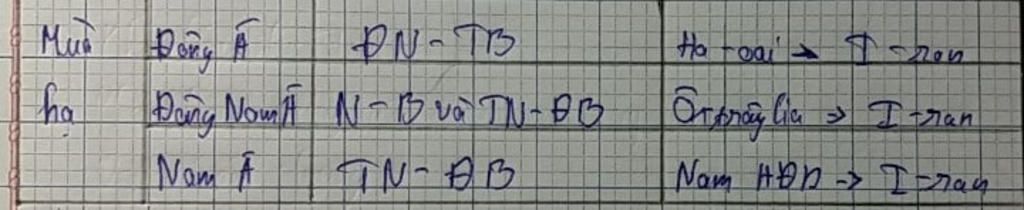 Mùa Đông Á ĐN - TB Ha-oai → I-ran
hạ Đông Nam Á N - B và TN - ĐB Ôxtrâylia → I-ran
Nam Á TN - ĐB Nam AĐD → I-ran